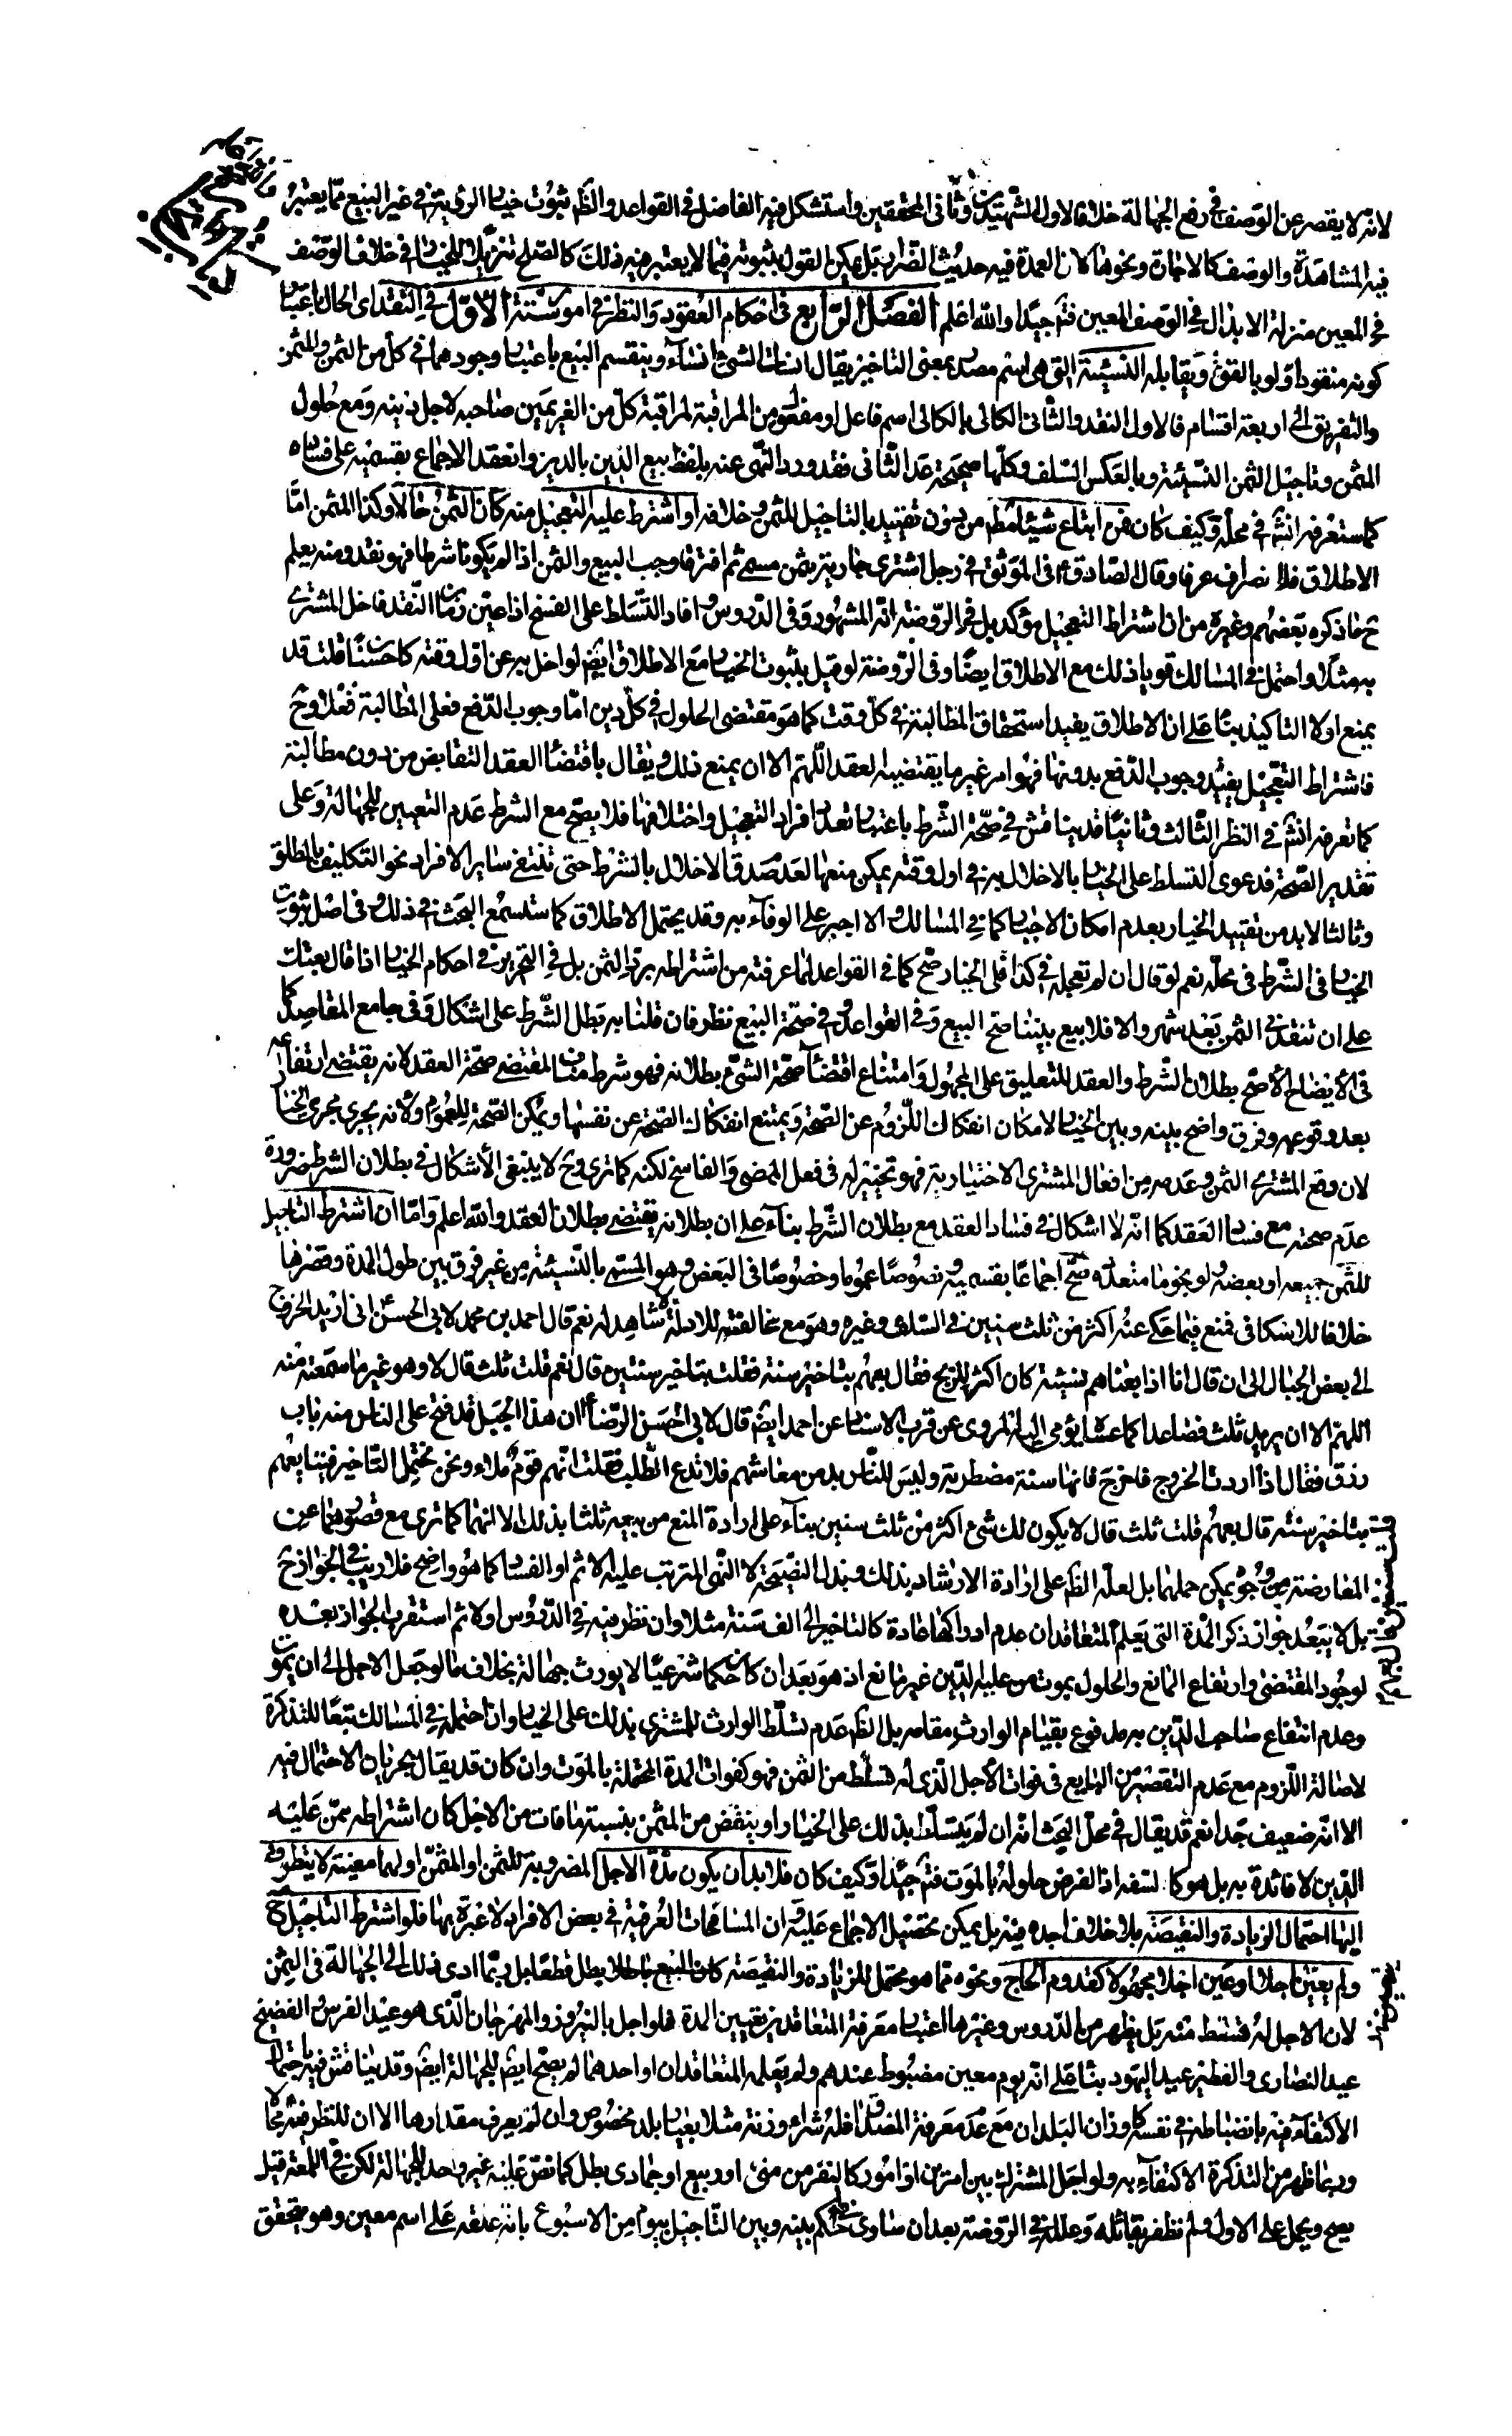 لانه لا يقصر عن الوصف في رفع الجهالة خلافا لاول الشهيدين وثاني المحققين واستشكل فيه الفاضل في القواعد والظ ثبوت خيار الرؤية في غير البيع مما يعتبر
فيه المشاهدة والوصف كالاجارة ونحوها لان العمدة فيه حديث الضرار بل يمكن القول بثبوته فيما لا يعتبر فيه ذلك كالصلح تنزيلا للخيار في خلاف الوصف
في المعين منزلة الابدال في الوصف المعين فت جيدا والله اعلم الفصل الرابع في احكام العقود والنظر في امور ستة الاول في النقد اى الحال باعتبار
كونه منقودا ولو بالقوة ويقابله النسيئة التي هي اسم مصدر بمعنى التاخير يقال انسات الشئ انساء وينقسم البيع باعتبار وجودهما في كل من الثمن والمثمن
والتفريق الى اربعة اقسام فالاول النقد والثاني الكالى بالكالى اسم فاعل او مفعول من المراقبة لمراقبة كل من الغريمين صاحبه لاجل دينه ومع حلول
المثمن وتاجيل الثمن النسيئة وبالعكس السلف وكلها صحيحة عدا الثاني فقد ورد النهى عنه بلفظ بيع الدين بالدين وانعقد الاجماع بقسميه على فساده
كما ستعرفه انش في محله وكيف كان فمن ابتاع شيئا مط من دون تقييد بالتاجيل للثمن وخلافه او اشترط عليه التعجيل منه كان الثمن حالا وكذا المثمن اما
الاطلاق فلانصرافه عرفا وقال الصادق ع في الموثق في رجل اشترى جارية بثمن مسمى ثم افترقا وجب البيع والثمن اذا لم يكونا شرطا فهو نقد ومنه يعلم
ح ما ذكره بعضهم وغيره من ان اشتراط التعجيل مؤكد بل في الروضة انه المشهور وفي الدروس افاد التسلط على الفسخ اذا عين زمان النقد فاخل المشترى
به مثلا واحتمل في المسالك قويا ذلك مع الاطلاق ايضا وفي الروضة لو قيل بثبوت الخيار مع الاطلاق ايض لو اخل به عن اول وقته كان حسنا قلت قد
يمنع اولا التاكيد بناء على ان الاطلاق يفيد استحقاق المطالبة في كل وقت كما هو مقتضى الحلول في كل دين اما وجوب الدفع فعلى المطالبة فعلا وح
فاشتراط التعجيل يفيد وجوب الدفع بدونها فهو امر غير ما يقتضيه العقد اللهم الا ان يمنع ذلك ويقال باقتضاء العقد التقابض من دون مطالبة
كما تعرفه انش في النظر الثالث وثانيا قد يناقش في صحة الشرط باعتبار تعدد افراد التعجيل واختلافها فلا يصح مع الشرط عدم التعيين للجهالة وعلى
تقدير الصحة فدعوى التسلط على الخيار بالاخلال به في اول وقته يمكن منعها لعدم صدق الاخلال بالشرط حتى تنتفى ساير الافراد نحو التكليف بالمطلق
وثالثا لا بد من تقييد الخيار بعدم امكان الاجبار كما في المسالك والا اجبر على الوفاء به وقد يحتمل الاطلاق كما ستسمع البحث في ذلك وفي اصل ثبوت
الخيار في الشرط في محله نعم لو قال ان لم تعجله في كذا فلى الخيار صح كما في القواعد لما عرفته من اشتراطه برد الثمن بل في التحرير في احكام الخيار اذا قال بعتك
على ان تنقدني الثمن بعد شهر والا فلا بيع بيننا صح البيع وفي القواعد وفي صحة البيع نظر فان قلنا به بطل الشرط على اشكال وفي جامع المقاصد كما
في الايضاح الاصح بطلان الشرط والعقد للتعليق على المجهول وامتناع اقتضاء صحة الشئ بطلانه فهو شرط مناف لمقتضى صحة العقد لانه يقتضى ارتفاعه
بعد وقوعه وفرق واضح بينه وبين الخيار لامكان انفكاك اللزوم عن الصحة ويمتنع انفكاك الصحة عن نفسها ويمكن الصحة للعموم ولانه يجرى مجرى الخيار
لان دفع المشترى الثمن وعدمه من افعال المشترى الاختيارية فهو تخيير له في فعل الممضى والفاسخ لكنه كما ترى وح لا ينبغى الاشكال في بطلان الشرط ضرورة
عدم صحته مع فساد العقد كما انه لا اشكال في فساد العقد مع بطلان الشرط بناء على ان بطلانه يقتضى بطلان العقد والله اعلم واما ان اشترط التاجيل
للثمن جميعه او بعضه ولو نجوما متعددة صح اجماعا بقسميه ونصوصا عموما وخصوصا في البعض وهو المسمى بالنسيئة من غير فرق بين طول المدة وقصرها
خلافا للاسكافى فمنع فيما حكى عنه اكثر من ثلث سنين في السلف وغيره وهو مع مخالفته للادلة لا شاهد له نعم قال احمد بن محمد لابى الحسن ع انى اريد الخروج
الى بعض الجبال الى ان قال انا اذا بعناهم بنسيئة كان اكثر للربح فقال بعهم بتاخير سنة فقلت بتاخير سنتين قال نعم قلت ثلث قال لا وهو غير ما سمعته منه
اللهم الا ان يريد ثلث فصاعدا كما عساه يؤمى اليه المروى عن قرب الاسناد عن احمد ايض قال لابى الحسن الرضا ع ان هذا الجبل قد فتح على الناس منه باب
رزق فقال اذا اردت الخروج فاخرج فانها سنة مضطربة وليس للناس بد من معاشهم فلا تدع الطلب فقلت انهم قوم ملاء ونحن نحتمل التاخير فنبايعهم
بتاخير سنة قال بعهم قلت ثلث قال لا يكون لك شئ اكثر من ثلث سنين بناء على ارادة المنع من بيعه ثلثا بذلك الا انهما كما ترى مع قصورهما عن
المعارضة من وجوه يمكن حملهما بل لعله الظ على ارادة الارشاد بذلك وبذل النصيحة لا النهى المترتب عليه الاثم او الفساد كما هو واضح فلا ريب في الجواز ح
بل لا يبعد جواز ذكر المدة التى يعلم المتعاقدان عدم ادراكها عادة كالتاخير الى الف سنة مثلا وان نظر فيه في الدروس اولا ثم استقرب الجواز بعده
لوجود المقتضى وارتفاع المانع والحلول بموت من عليه الدين غير مانع اذ هو بعد ان كان حكما شرعيا لا يورث جهالة بخلاف ما لو جعل الاجل الى ان يموت
وعدم انتفاع صاحب الدين به مدفوع بقيام الوارث مقامه بل الظ عدم تسلط الوارث للمشترى بذلك على الخيار وان احتمله في المسالك تبعا للتذكرة
لاصالة اللزوم مع عدم التقصير من البايع في فوات الاجل الذى له قسط من الثمن فهو كفوات المدة المحتملة بالموت وان كان قد يقال بجريان الاحتمال فيه
الا انه ضعيف جدا نعم قد يقال في محل البحث انه ان لم يتسلط بذلك على الخيار او ينقص من الثمن بنسبة ما فات من الاجل كان اشتراطه ممن عليه
الدين لا فائدة به بل هو كالسفه اذ الفرض حلوله بالموت فت جيدا وكيف كان فلا بد ان يكون مدة الاجل المضروبة للثمن او المثمن او لهما معينة لا يتطرق
اليها احتمال الزيادة والنقيصة بلا خلاف اجده فيه بل يمكن تحصيل الاجماع عليه وان المسامحات العرفية في بعض الافراد لا عبرة بها فلو اشترط التاجيل ح
ولم يعين اجلا او عين اجلا مجهولا كقدوم الحاج ونحوه مما هو محتمل للزيادة والنقيصة كان البيع باطلا بطل قطعا بل ربما ادى ذلك الى الجهالة في الثمن
لان الاجل له قسط منه بل يظهر من الدروس وغيرها اعتبار معرفة المتعاقدين تعيين المدة فلو اجل بالنيروز والمهرجان الذى هو عيد الفرس الفصيح
عيد النصارى والفطير عيد اليهود بناء على انه يوم معين مضبوط عندهم ولم يعلمه المتعاقدان او احدهما لم يصح ايض للجهالة ايض وقد يناقش فيه باحتمال
الاكتفاء فيه بانضباطه في نفسه كاوزان البلدان مع عدم معرفة المصداق فله شراء وزنة مثلا بعيار بلد مخصوص وان لم يعرف مقدارها الا ان للنظر فيه مجالا
وربما ظهر من التذكرة الاكتفاء به ولو اجل المشترك بين امرين او امور كالنفر من منى او ربيع او جمادى بطل كما نص عليه غير واحد للجهالة لكن في اللمعة قيل
يصح ويحمل على الاول ولم نظفر بقائله وعلله في الروضة بعد ان ساوى في الحكم بينه وبين التاجيل بيوم من الاسبوع بانه علقه على اسم معين وهو يتحقق